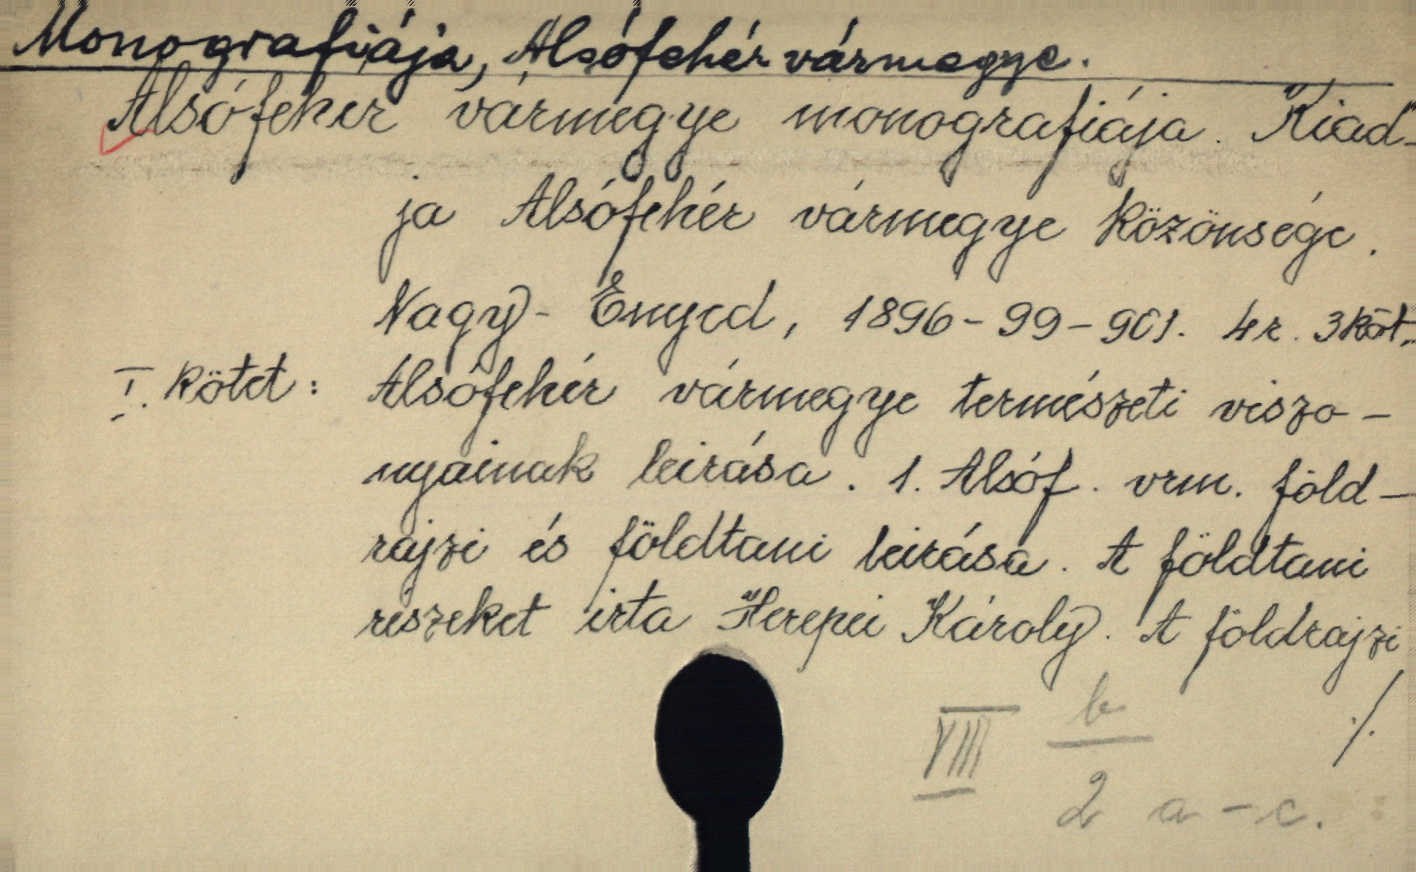 Monografiája, Alsófehér vármegye.
Alsófehér vármegye monografiája. Kiad-
ja Alsófehér vármegye közönsége.
Nagy-Enyed, 1896-99-901. 4r. 3 köt.
I. kötet: Alsófehér vármegye természeti viszo-
nyainak leirása. 1. Alsóf. vrm. föld-
rajzi és földtani leirása. A földtani
részeket irta Herepei Károly. A földrajzi
VIII b/2 a-c. ./.